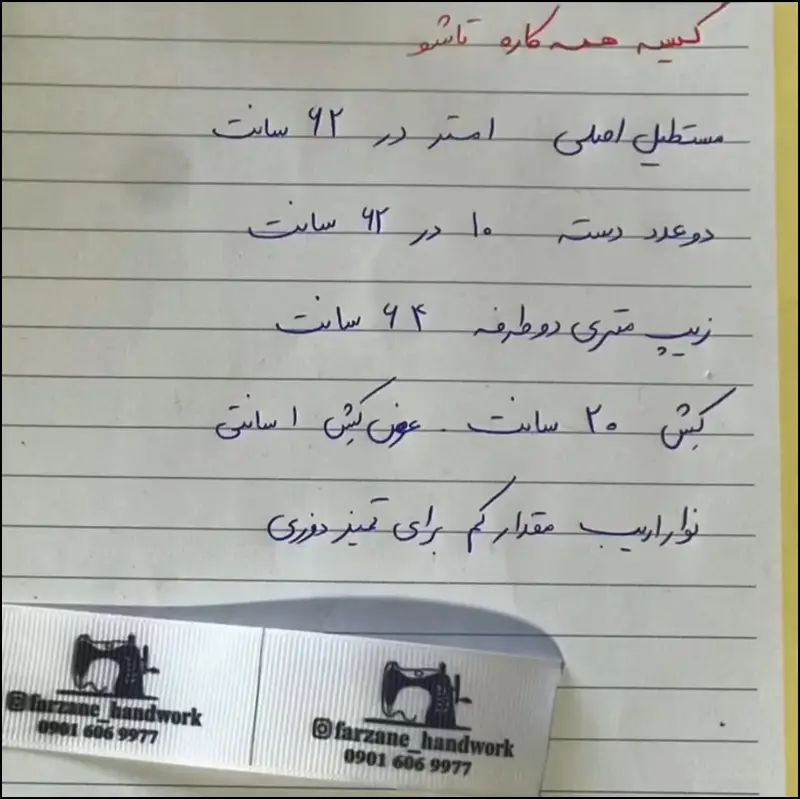 کیسه همه کاره تاشو
مستطیل اصلی ۱متر در ۶۲ سانت
دو عدد دسته ۱۰ در ۶۲ سانت
زیپ متری دو طرفه ۶۴ سانت
کش ۲۰ سانت . عرض کش ۱ سانتی
نوار اریب مقدار کم برای تمیز دوزی
@farzane_handwork
0901 606 9977
farzane_handwork
0901 606 9977